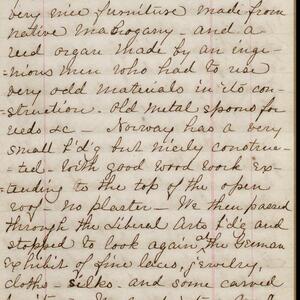 very nice furniture made from
native mahogany - and a
reed organ made by an inge-
-nious men who had to use
very odd materials in its con-
-struction. Old metal spoons for
reeds &c - Norway has a very
small b'd'g but nicely construc-
-ted. With good wood work ex-
-tending to the top of the open
roof - no plaster - We then passed
through the Liberal Arts b'd'g and
stopped to look again at the German
exhibit of fine laces, jewelry,
cloths - silks - and some carved